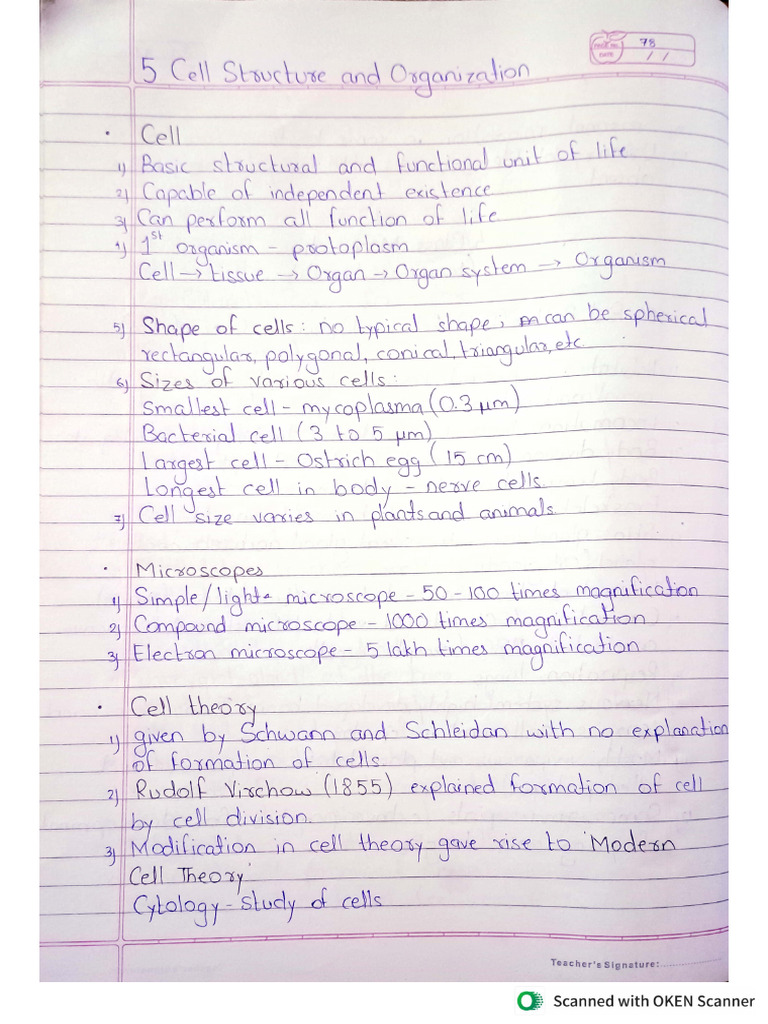 PAGE NO. 78
DATE / /
5 Cell Structure and Organization
• Cell
1) Basic structural and functional unit of life
2) Capable of independent existence
3) Can perform all function of life
4) 1st organism - protoplasm
Cell → tissue → Organ → Organ system → Organism
5) Shape of cells : no typical shape ; can be spherical
rectangular, polygonal, conical, triangular, etc
6) Sizes of various cells :
Smallest cell - mycoplasma (0.3 μm)
Bacterial cell (3 to 5 μm)
Largest cell - Ostrich egg (15 cm)
Longest cell in body - nerve cells
7) Cell size varies in plants and animals
• Microscopes
1) Simple/light microscope - 50 - 100 times magnification
2) Compound microscope - 1000 times magnification
3) Electron microscope - 5 lakh times magnification
• Cell theory
1) given by Schwann and Schleidan with no explanation
of formation of cells.
2) Rudolf Virchow (1855) explained formation of cell
by cell division.
3) Modification in cell theory gave rise to Modern
Cell Theory
Cytology - study of cells
Teacher's Signature:..............
Scanned with OKEN Scanner